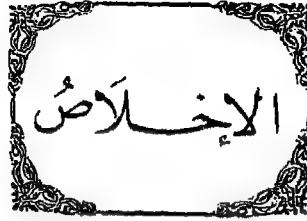 الإخلَاصُ